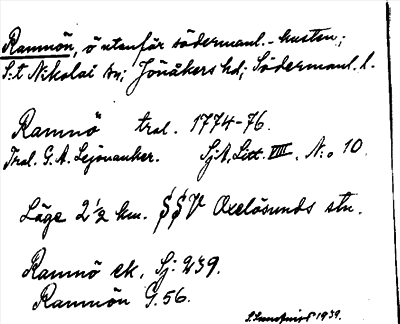 Ramnön, ö utanför södermanl.-kusten;
S:t Nikolai sn; Jönåkers hd; Södermanl. l.
Ramnö tral. 1774-76.
Tral. G. A. Lejonanker. SjA, Litt. VIII, N:o 10.
Läge 2 1/2 km. SSV Oxelösunds stn.
Ramnö ek. Sj. 239.
Ramnön G. 56.
1939.